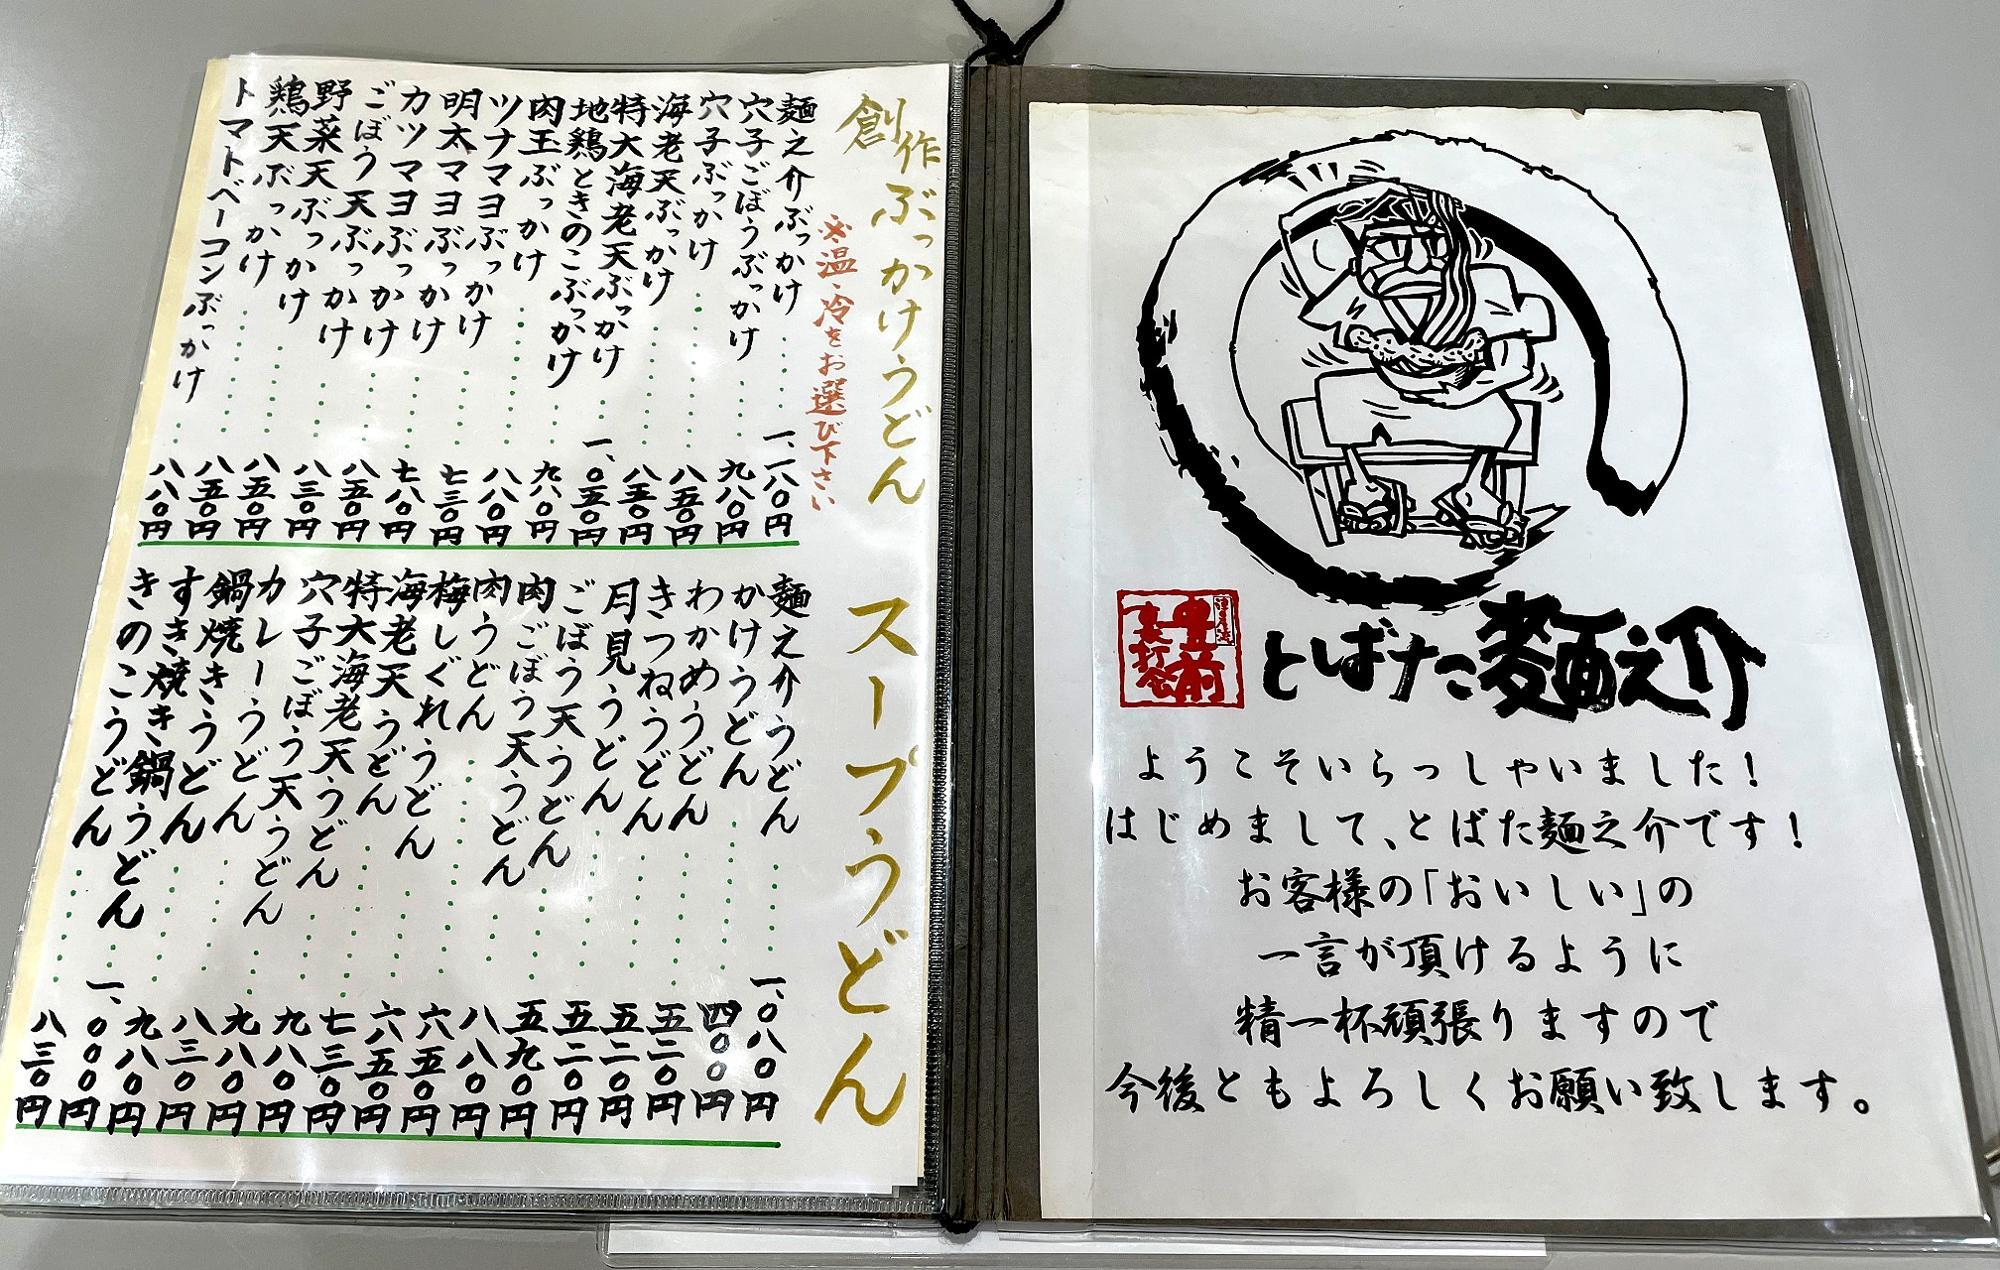 創作ぶっかけうどん
※温・冷をお選び下さい
麺之介ぶっかけ 一、一八〇円
穴子ごぼうぶっかけ 九八〇円
穴子ぶっかけ 八五〇円
海老天ぶっかけ 八五〇円
特大海老天ぶっかけ 一、〇五〇円
地鶏ときのこぶっかけ 九八〇円
肉玉ぶっかけ 八八〇円
ツナマヨぶっかけ 七三〇円
明太マヨぶっかけ 七八〇円
カツマヨぶっかけ 八五〇円
ごぼう天ぶっかけ 八三〇円
野菜天ぶっかけ 八五〇円
鶏天ぶっかけ 八五〇円
トマトベーコンぶっかけ 八八〇円
スープうどん
麺之介うどん 一、〇八〇円
かけうどん 四〇〇円
わかめうどん 五二〇円
きつねうどん 五二〇円
月見うどん 五二〇円
ごぼう天うどん 五九〇円
肉ごぼう天うどん 八八〇円
肉うどん 六五〇円
梅しぐれうどん 六五〇円
海老天うどん 七三〇円
特大海老天うどん 九八〇円
穴子ごぼう天うどん 九八〇円
カレーうどん 八三〇円
鍋焼きうどん 九八〇円
すき焼き鍋うどん 一、〇〇〇円
きのこうどん 八三〇円
豊前
裏打会
とばた麺之介
ようこそいらっしゃいました！
はじめまして、とばた麺之介です！
お客様の「おいしい」の
一言が頂けるように
精一杯頑張りますので
今後ともよろしくお願い致します。